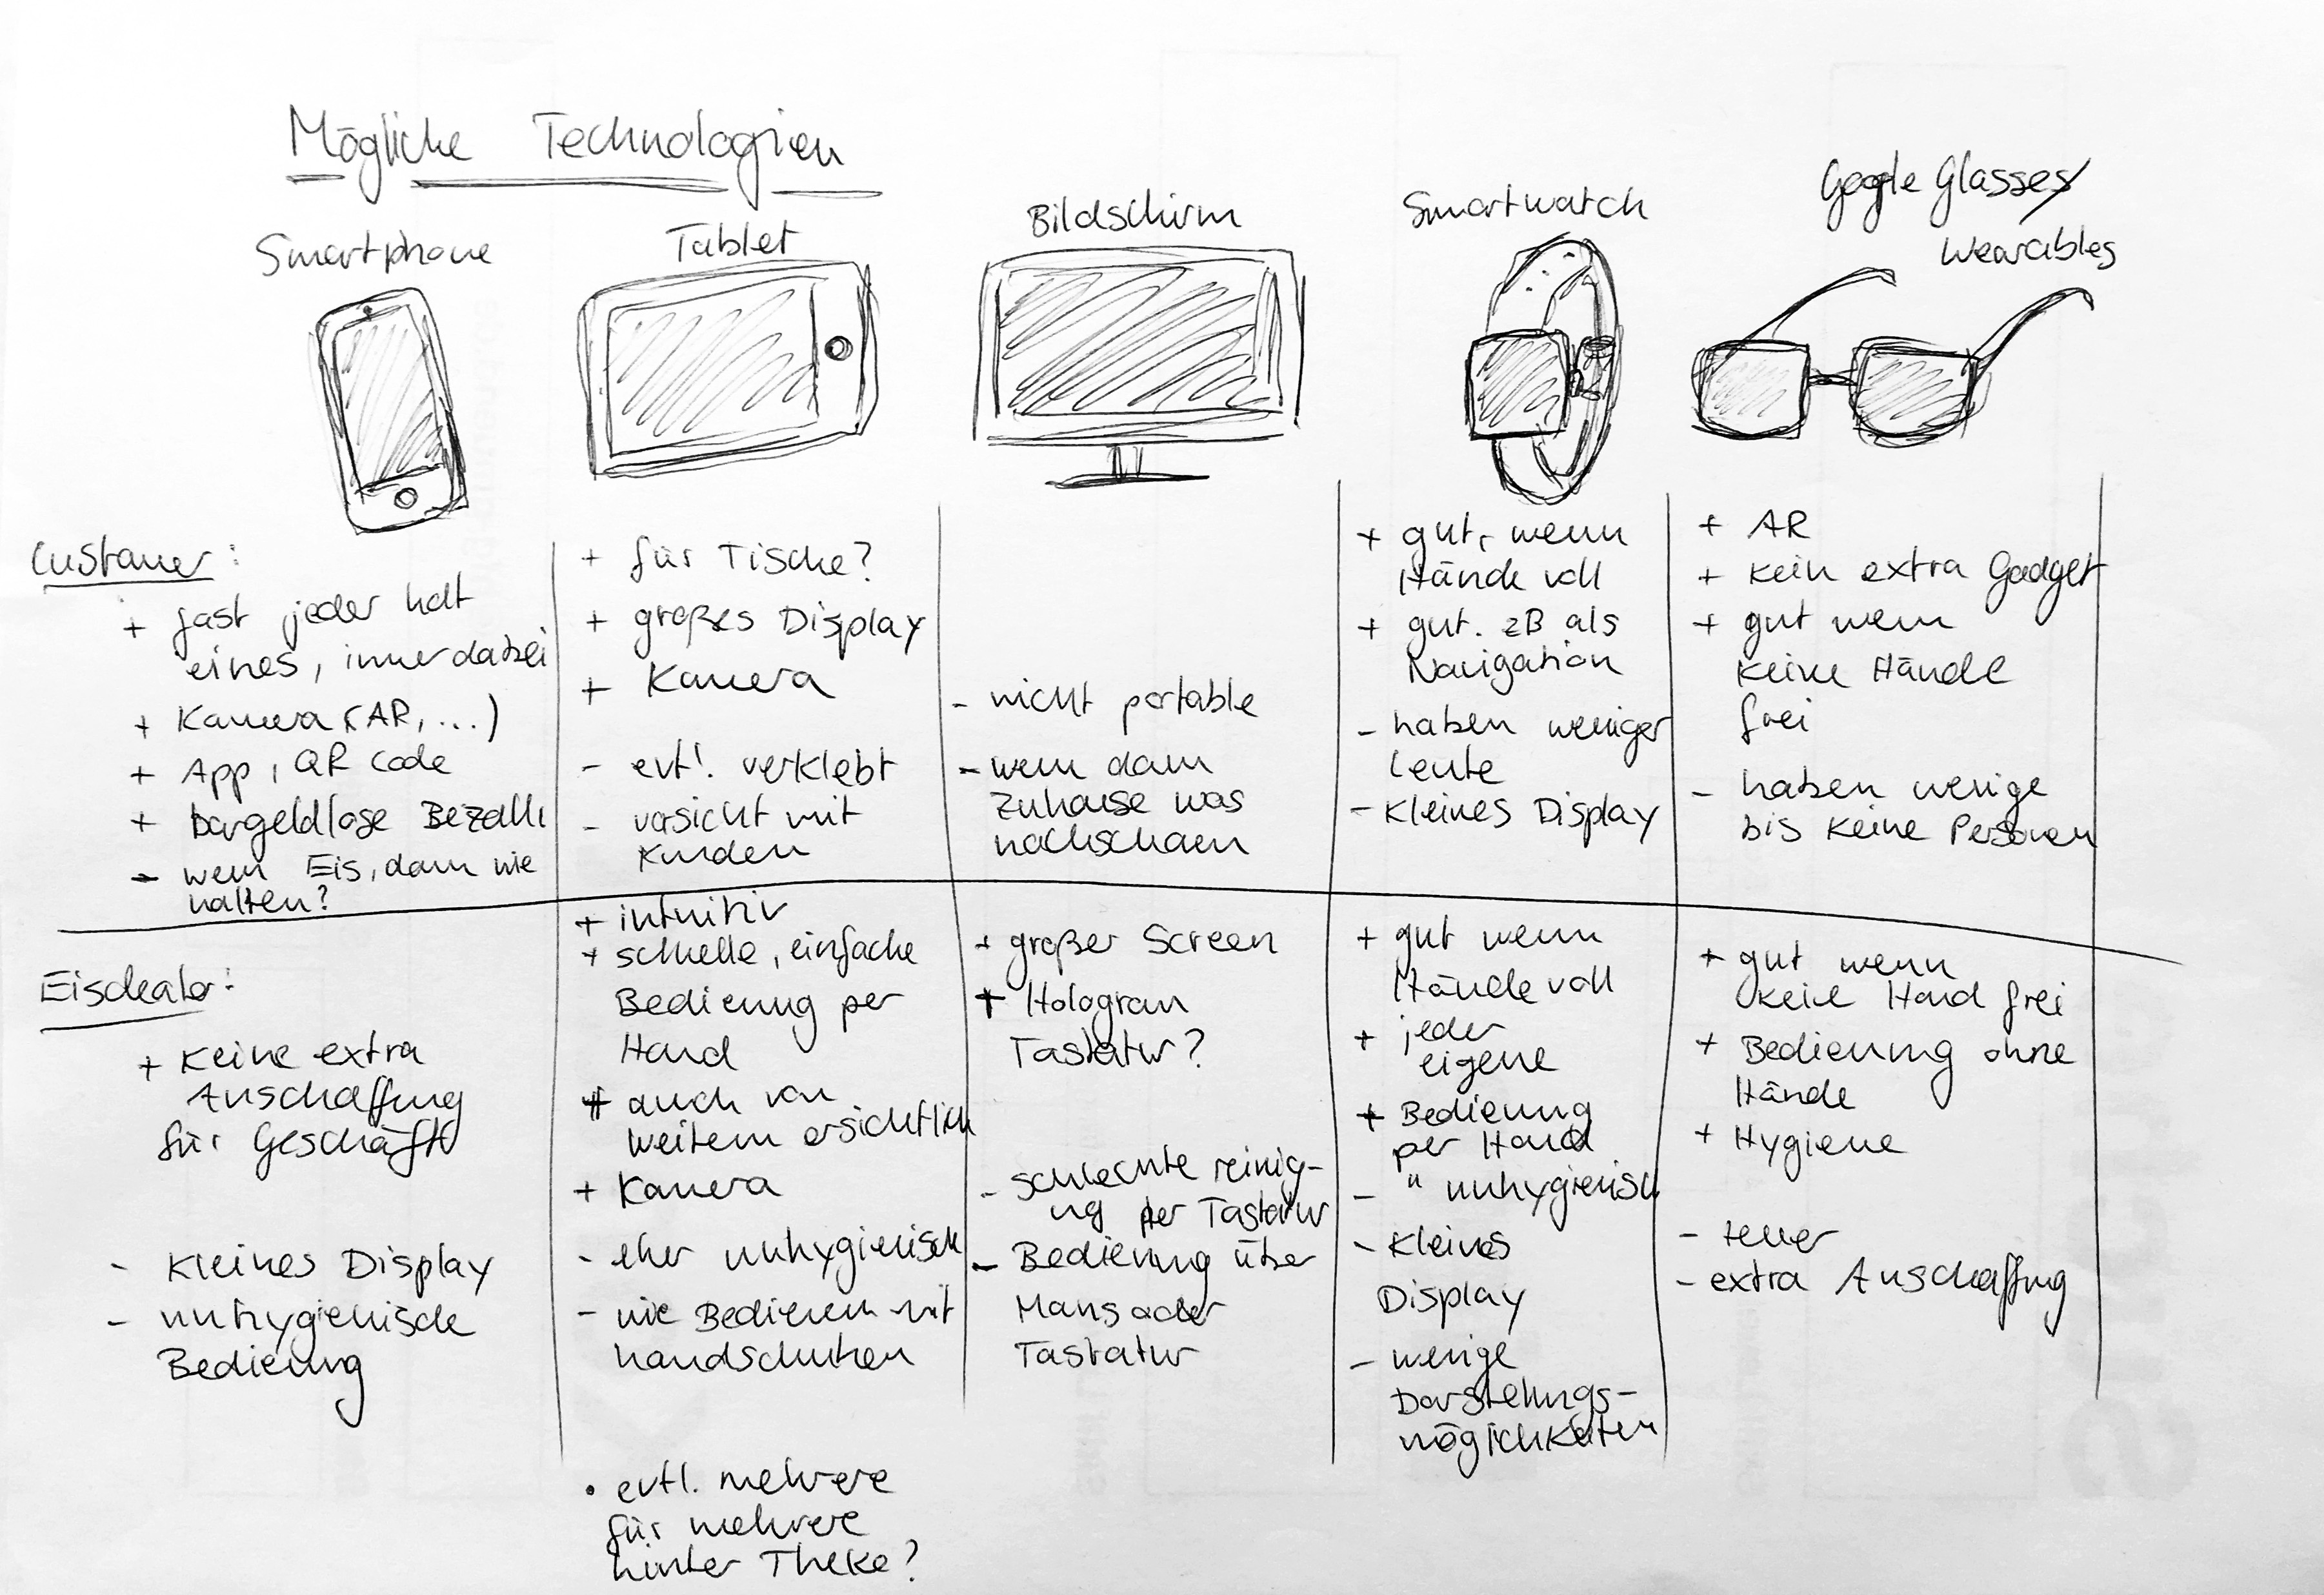 Mögliche Technologien
Smartphone
Tablet
Bildschirm
Smartwatch
Google Glasses/
Wearables
Customer:
+ fast jeder hat
eines, immer dabei
+ Kamera (AR, ...)
+ App, QR Code
+ bargeldlose Bezahl
- wenn Eis, dann wie
halten?
+ für Tische?
+ großes Display
+ Kamera
- evtl. verklebt
- vorsicht mit
Kunden
- nicht portable
- wenn dann
zuhause was
nachschauen
+ gut, wenn
Hände voll
+ gut. zB als
Navigation
- haben weniger
Leute
- Kleines Display
+ AR
+ kein extra Gadget
+ gut wenn
keine Hände
frei
- haben wenige
bis keine Personen
Eisdealer:
+ Keine extra
Anschaffung
für Geschäft
- Kleines Display
- unhygienische
Bedienung
+ intuitiv
+ schnelle, einfache
Bedienung per
Hand
+ auch von
weitem ersichtlich
+ Kamera
- eher unhygienisch
- wie Bedienen mit
handschuhen
• evtl. mehrere
für mehrere
hinter Theke?
+ großer Screen
+ Hologram
Tastatur?
- schlechte reinig-
ung der Tastatur
- Bedienung über
Maus oder
Tastatur
+ gut wenn
Hände voll
+ jeder
eigene
+ Bedienung
per Hand
- " unhygienisch
- Kleines
Display
- wenige
Darstellungs-
möglichkeiten
+ gut wenn
keine Hand frei
+ Bedienung ohne
Hände
+ Hygiene
- teuer
- extra Anschaffung